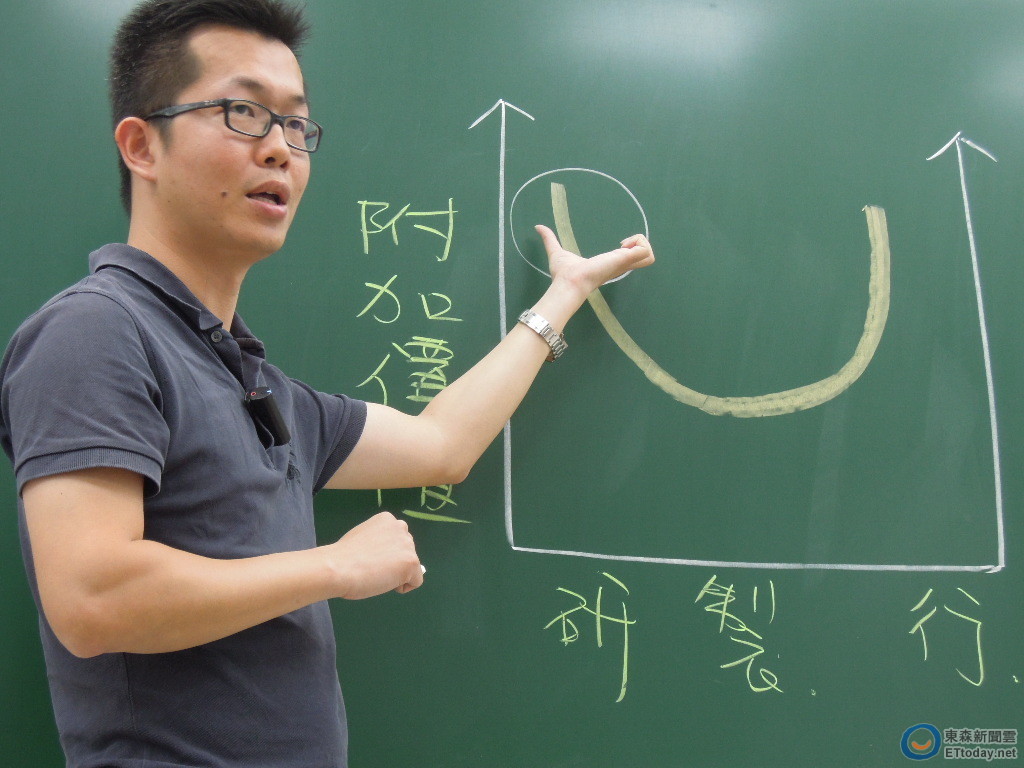 附
加
價
研 製. 行.
東森新聞雲
ETtoday.net